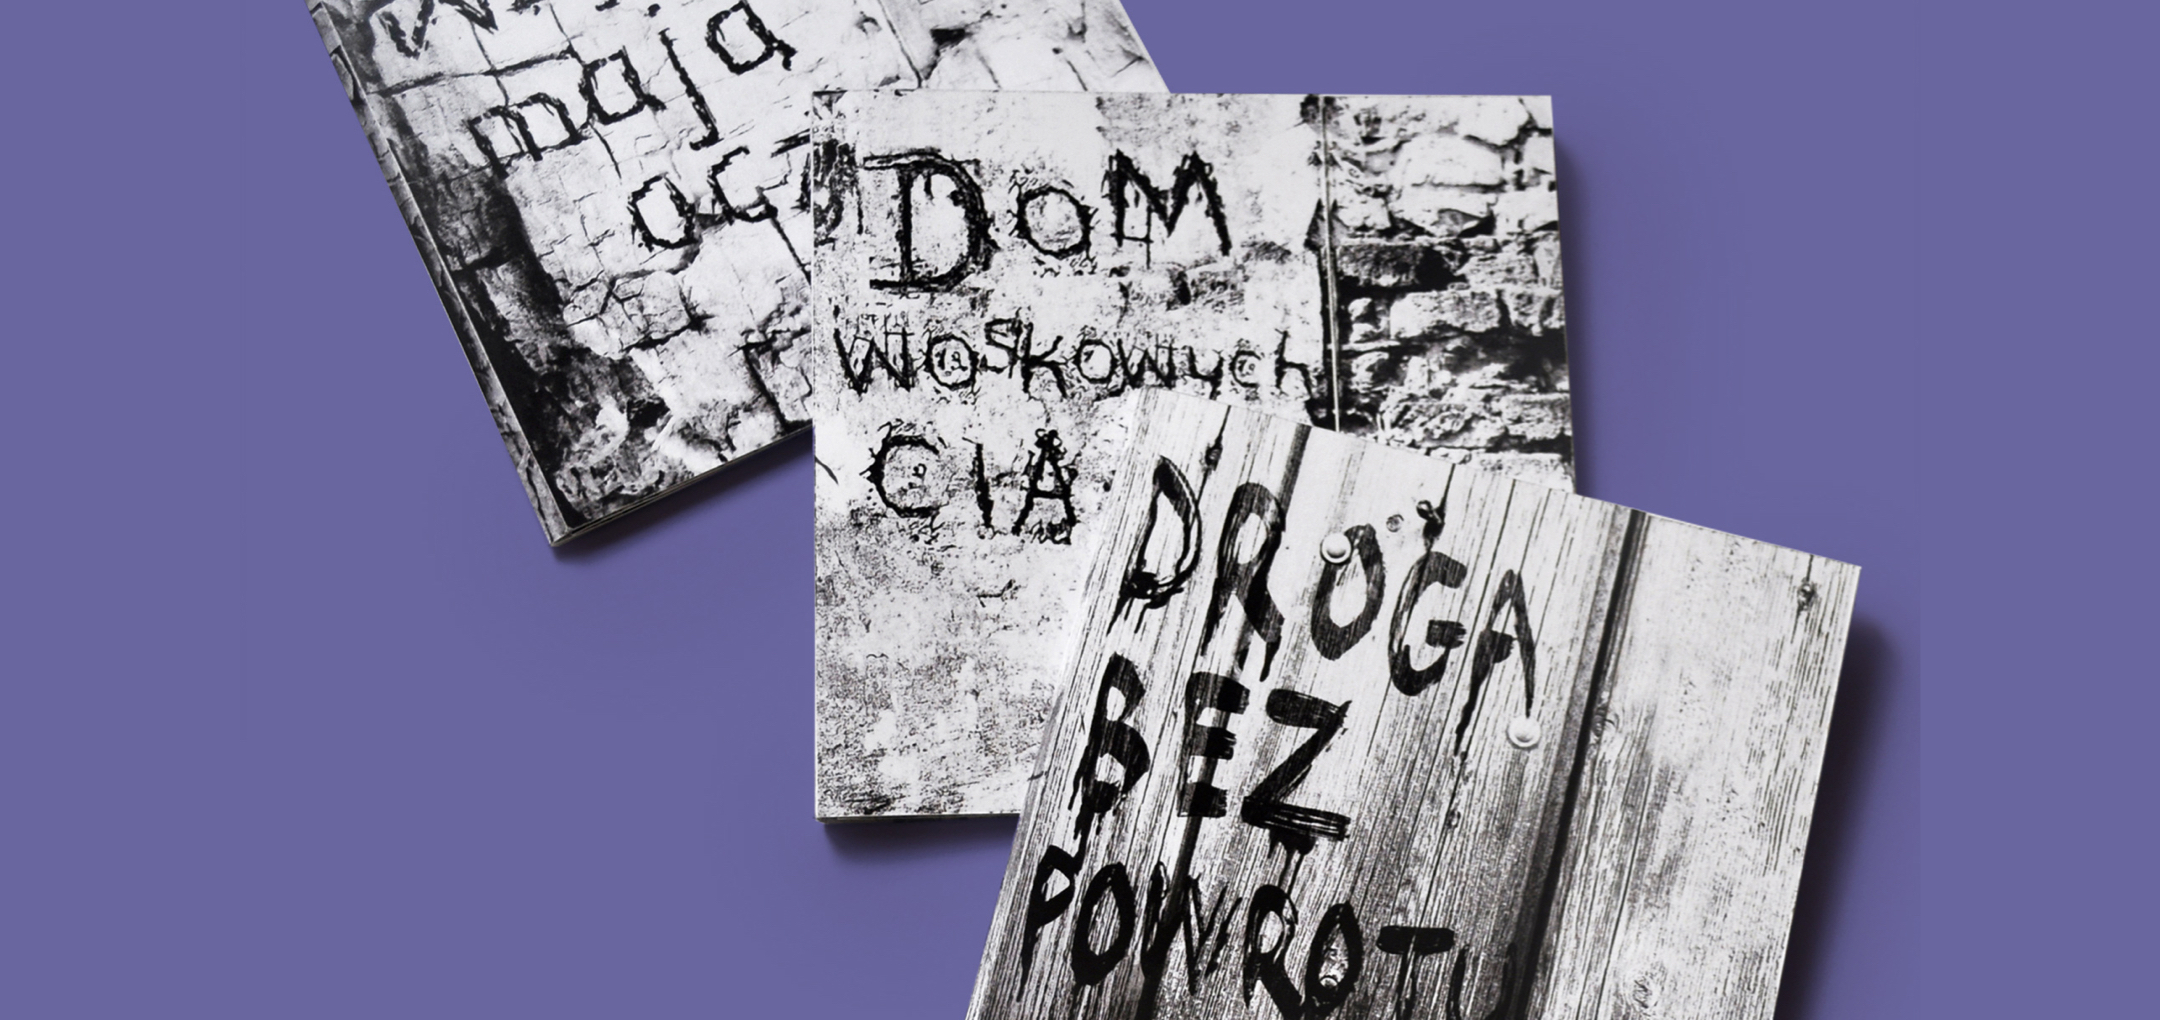 mają
ocz
DoM
WoSkowych
CIA
DROGA
BEZ
POWROTU